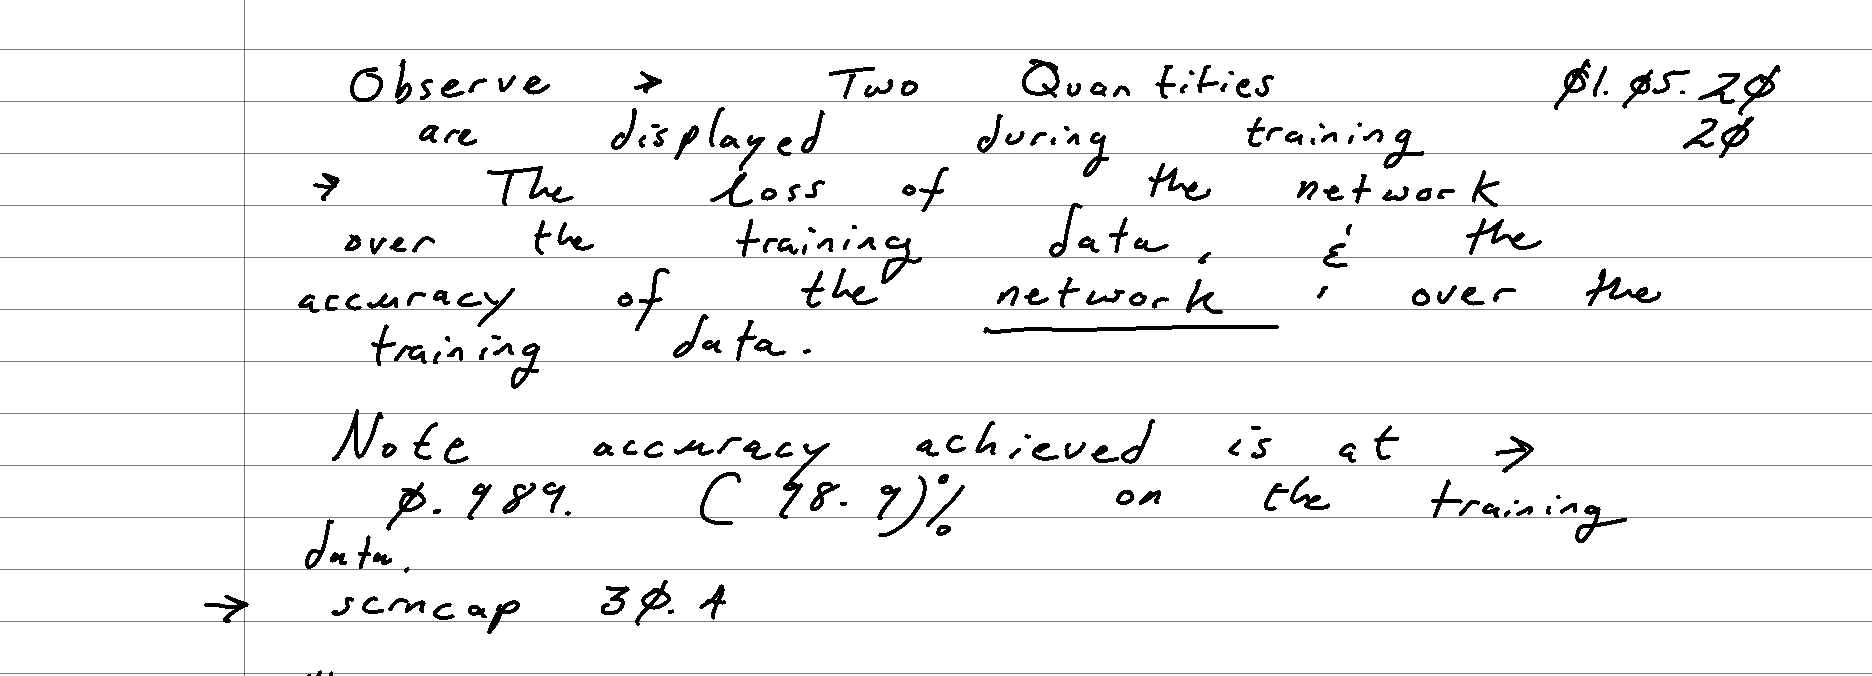 Observe → Two Quantities 01.05.20
are displayed during training 20
→ The loss of the network
over the training data, & the
accuracy of the network, over the
training data.
Note accuracy achieved is at →
0.989. (98.9)% on the training
data.
→ scrncap 30.A